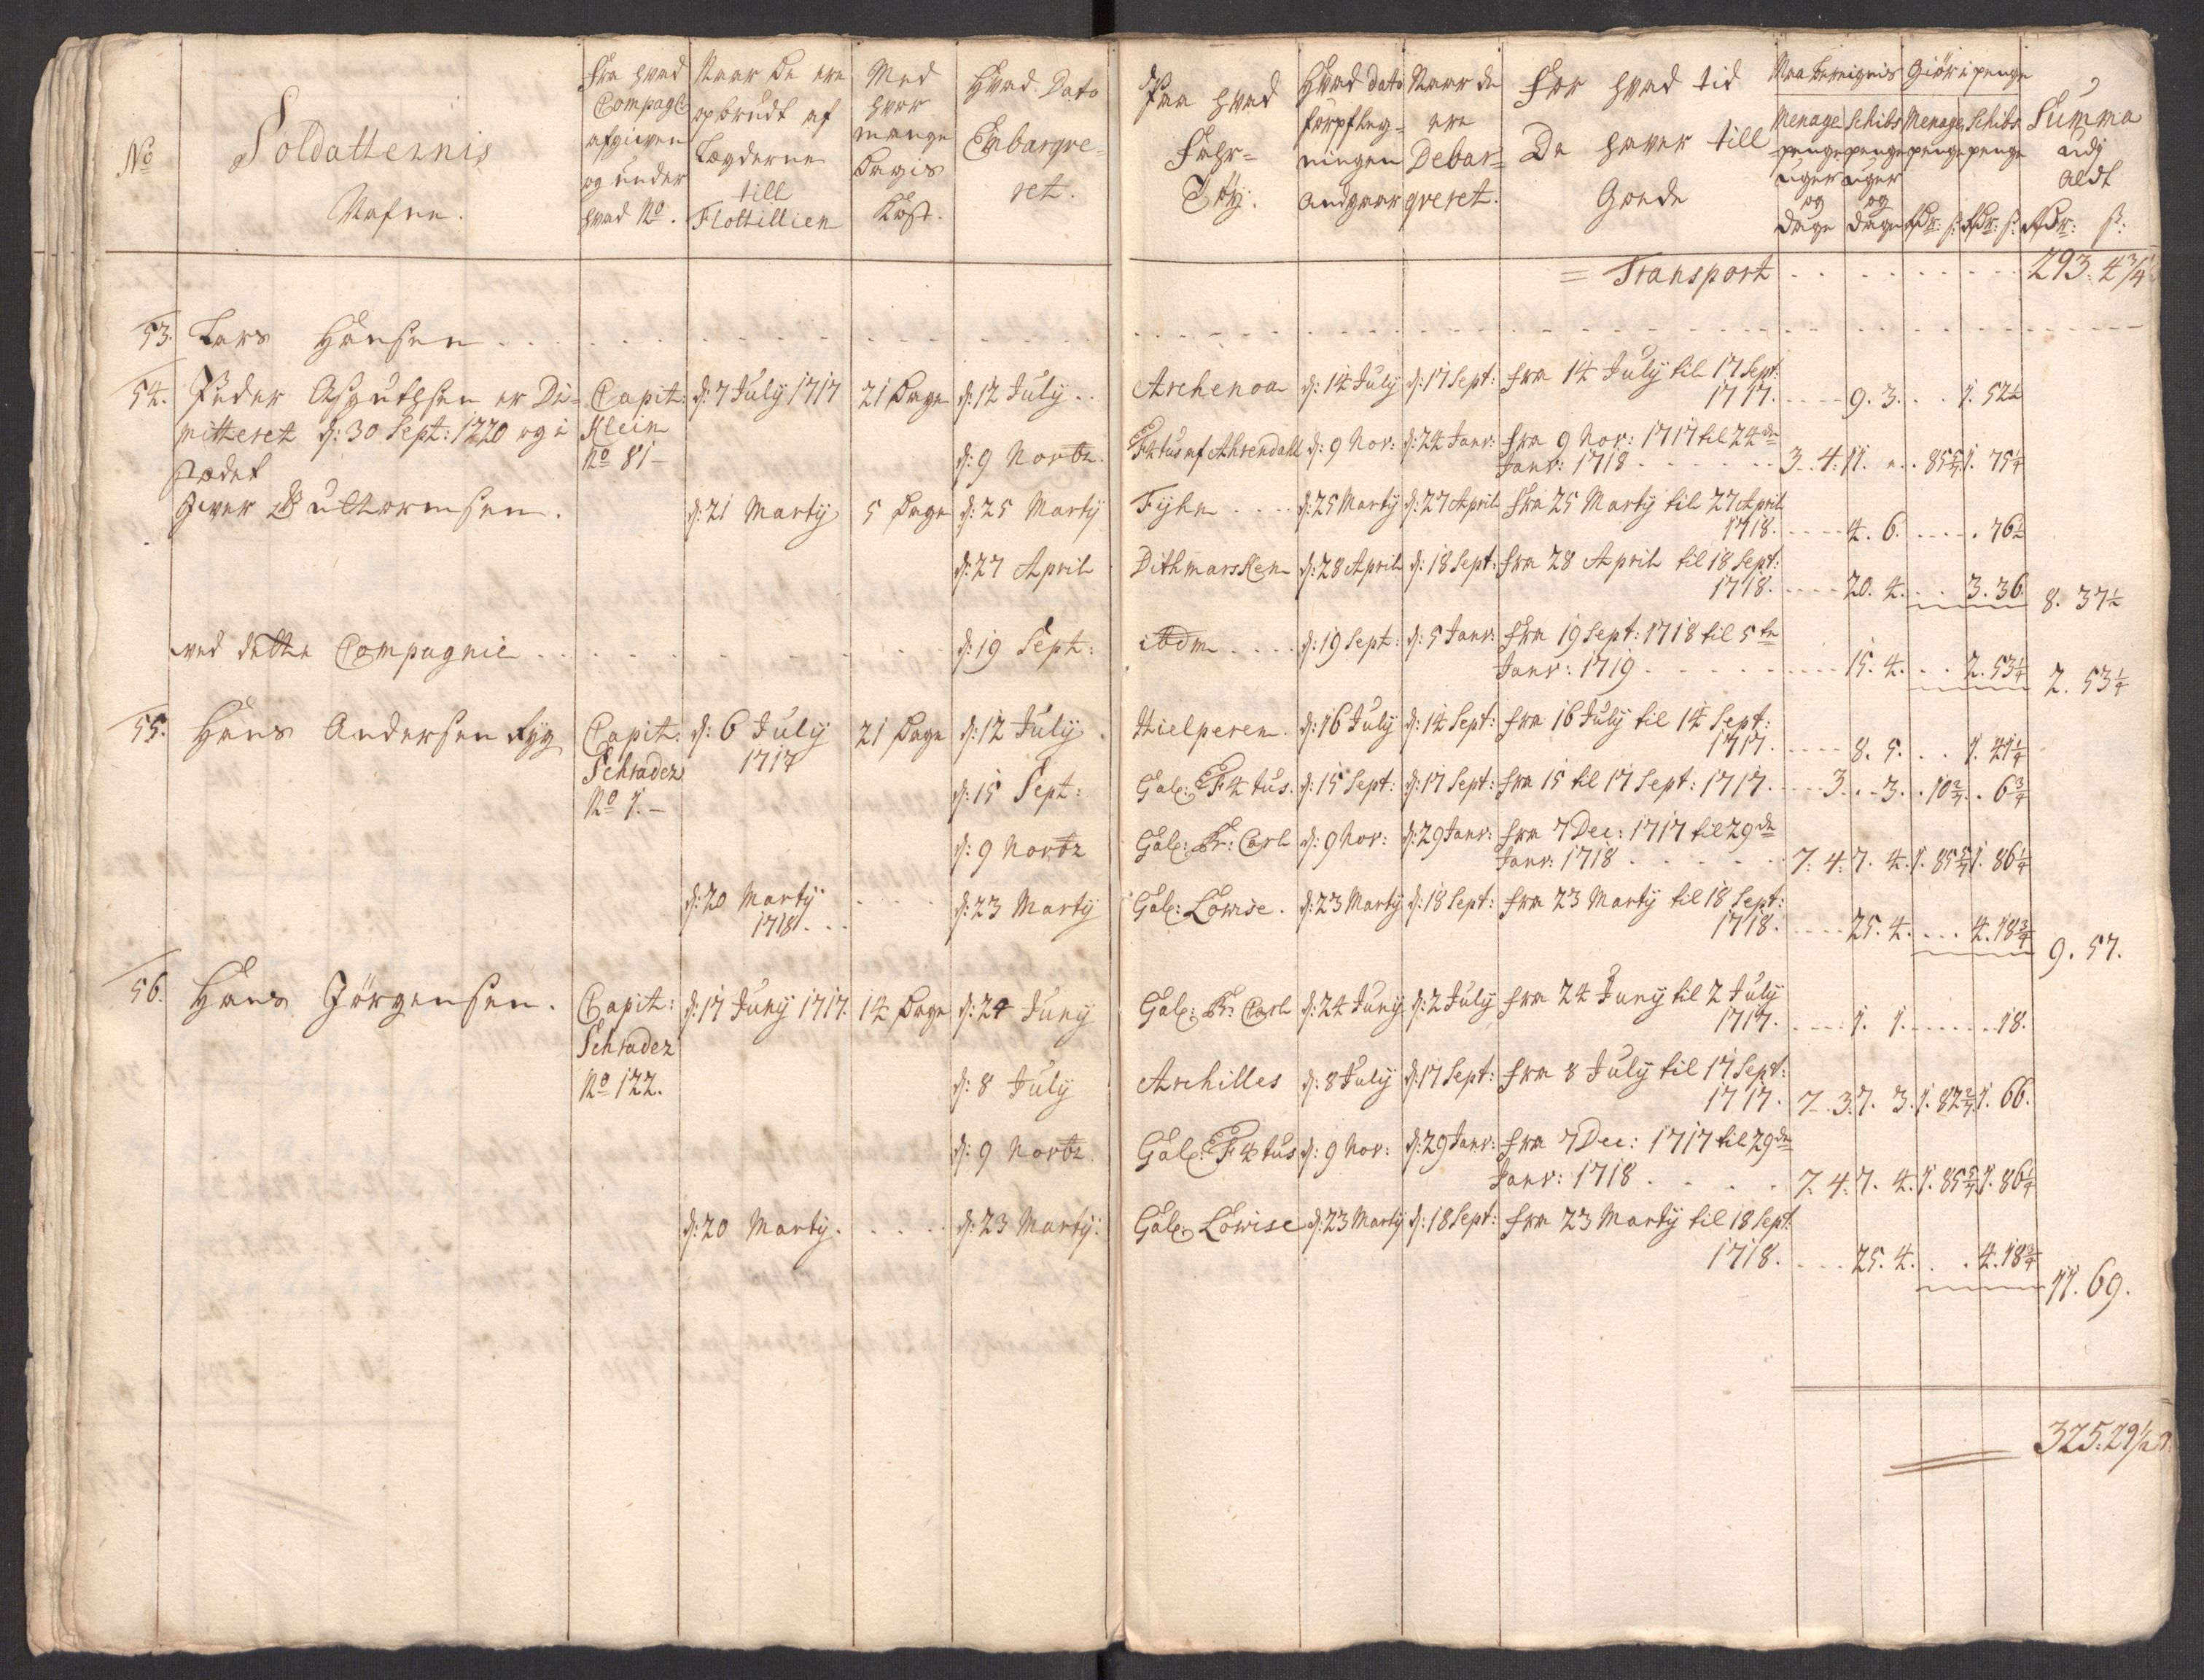 No
Soldatternis
Nafne.
Fra hvad
Compagn
afgiven
og under
hvad No.
Naar De ere
opbrudt af
Lægderne
till
Flottillien
Med
hvor
mange
Dagis
Kost.
Hvad Dato
Embarqve=
ret.
Paa hvad
Fahr=
Töy.
Hvad Dato
forpfleg=
ningen
andgaar
Naar de
ere
Debar=
qveret.
For hvad tid
De haver till
Gode
Menage
penge
uger
og
Dage
Schibs
penge
uger
og
Dage
Giör i penge
Menage
penge
Rdr: ß:
Schibs
penge
Rdr: ß:
Summa
udj
aldt
Rdr: ß:
= Transport . . . . . . . 293. 4 3/4
53. Lars Hansen . . . . .
54. Peder Asguthsen er Di= Capit: d: 7 July 1717 21 Dage d: 12 July . . Archenoa d: 14 July d: 17 Sept: fra 14 July til 17 Sept:
1717. . . . 9. 3. . . 1. 52 1/2
mitteret d: 30 Sept: 1720 og i Klein d: 9 Novbr. Fr 4tus af Ahrendahl d: 9 Nov: d: 24 Janv: fra 9 Nov: 1717 til 24de
stædet No 81 – Janv: 1718 . . . . 3. 4. 11. ". . 85 5/7 1. 75 1/4
Iver Guttormsen. d: 21 Martij 5 Dage d: 25 Martij Fyhn . . . d: 25 Martij d: 27 April fra 25 Martij til 27 April
1718. . . . 4. 6. . . . 76 1/2
d: 27 April Dithmarsken d: 28 April d: 18 Sept: fra 28 April til 18 Sept:
1718. . . . 20. 4. . . 3. 36. 8. 37 1/2
ved dette Compagnie . . . . d: 19 Sept: ibdm . . . d: 19 Sept: d: 5 Janv: fra 19 Sept: 1718 til 5te
Janv: 1719 . . . . 15. 4. . . 2. 53 1/4 2. 53 1/4
55. Hans Andersen Ryg Capit: d: 6 July 21 Dage d: 12 July . Hielperen. d: 16 July d: 14 Sept: fra 16 July til 14 Sept:
Schrader 1717 1717. . . . 8. 5. . . 1. 41 1/4
No 1. – d: 15 Sept: Gal: Fr 4tus. d: 15 Sept: d: 17 Sept: fra 15 til 17 Sept: 1717. . . 3. . 3. . 10 2/7. . 6 3/4
d: 9 Novbr Gal: Pr: Carl d: 9 Nov: d: 29 Janv: fra 7 Dec: 1717 til 29de
Janv: 1718 . . . . 7. 4. 7. 4. 1. 85 5/7 1. 86 1/4
d: 20 Martij . . . d: 23 Martij Gal: Lowise . d: 23 Martij d: 18 Sept: fra 23 Martij til 18 Sept:
1718 . . . 1718. . . . 25. 4. . . 4. 18 3/4 9. 57.
56. Hans Jörgensen . Capit: d: 17 Juny 1717. 14 Dage d: 24 Juny Gal: Pr: Carl d: 24 Juny d: 2 July fra 24 Juny til 2 July
Schrader 1717. . . . 1. 1. . . . 18.
No 122. d: 8 July Archilles d: 8 July d: 17 Sept: fra 8 July til 17 Sept:
1717. 7. 3. 7. 3. 1. 82 2/7 1. 66.
d: 9 Novbr. Gal: Fr 4tus d: 9 Nov: d: 29 Janv: fra 7 Dec: 1717 til 29de
Janv: 1718 . . . . 7. 4. 7. 4. 1. 85 5/7 1. 86 1/4
d: 20 Martij . . . . d: 23 Martij: Gal: Lowise d: 23 Martij d: 18 Sept: fra 23 Martij til 18 Sept.
1718. . . . 25. 4. . . 4. 18 3/4 11. 69.
325. 29 1/2